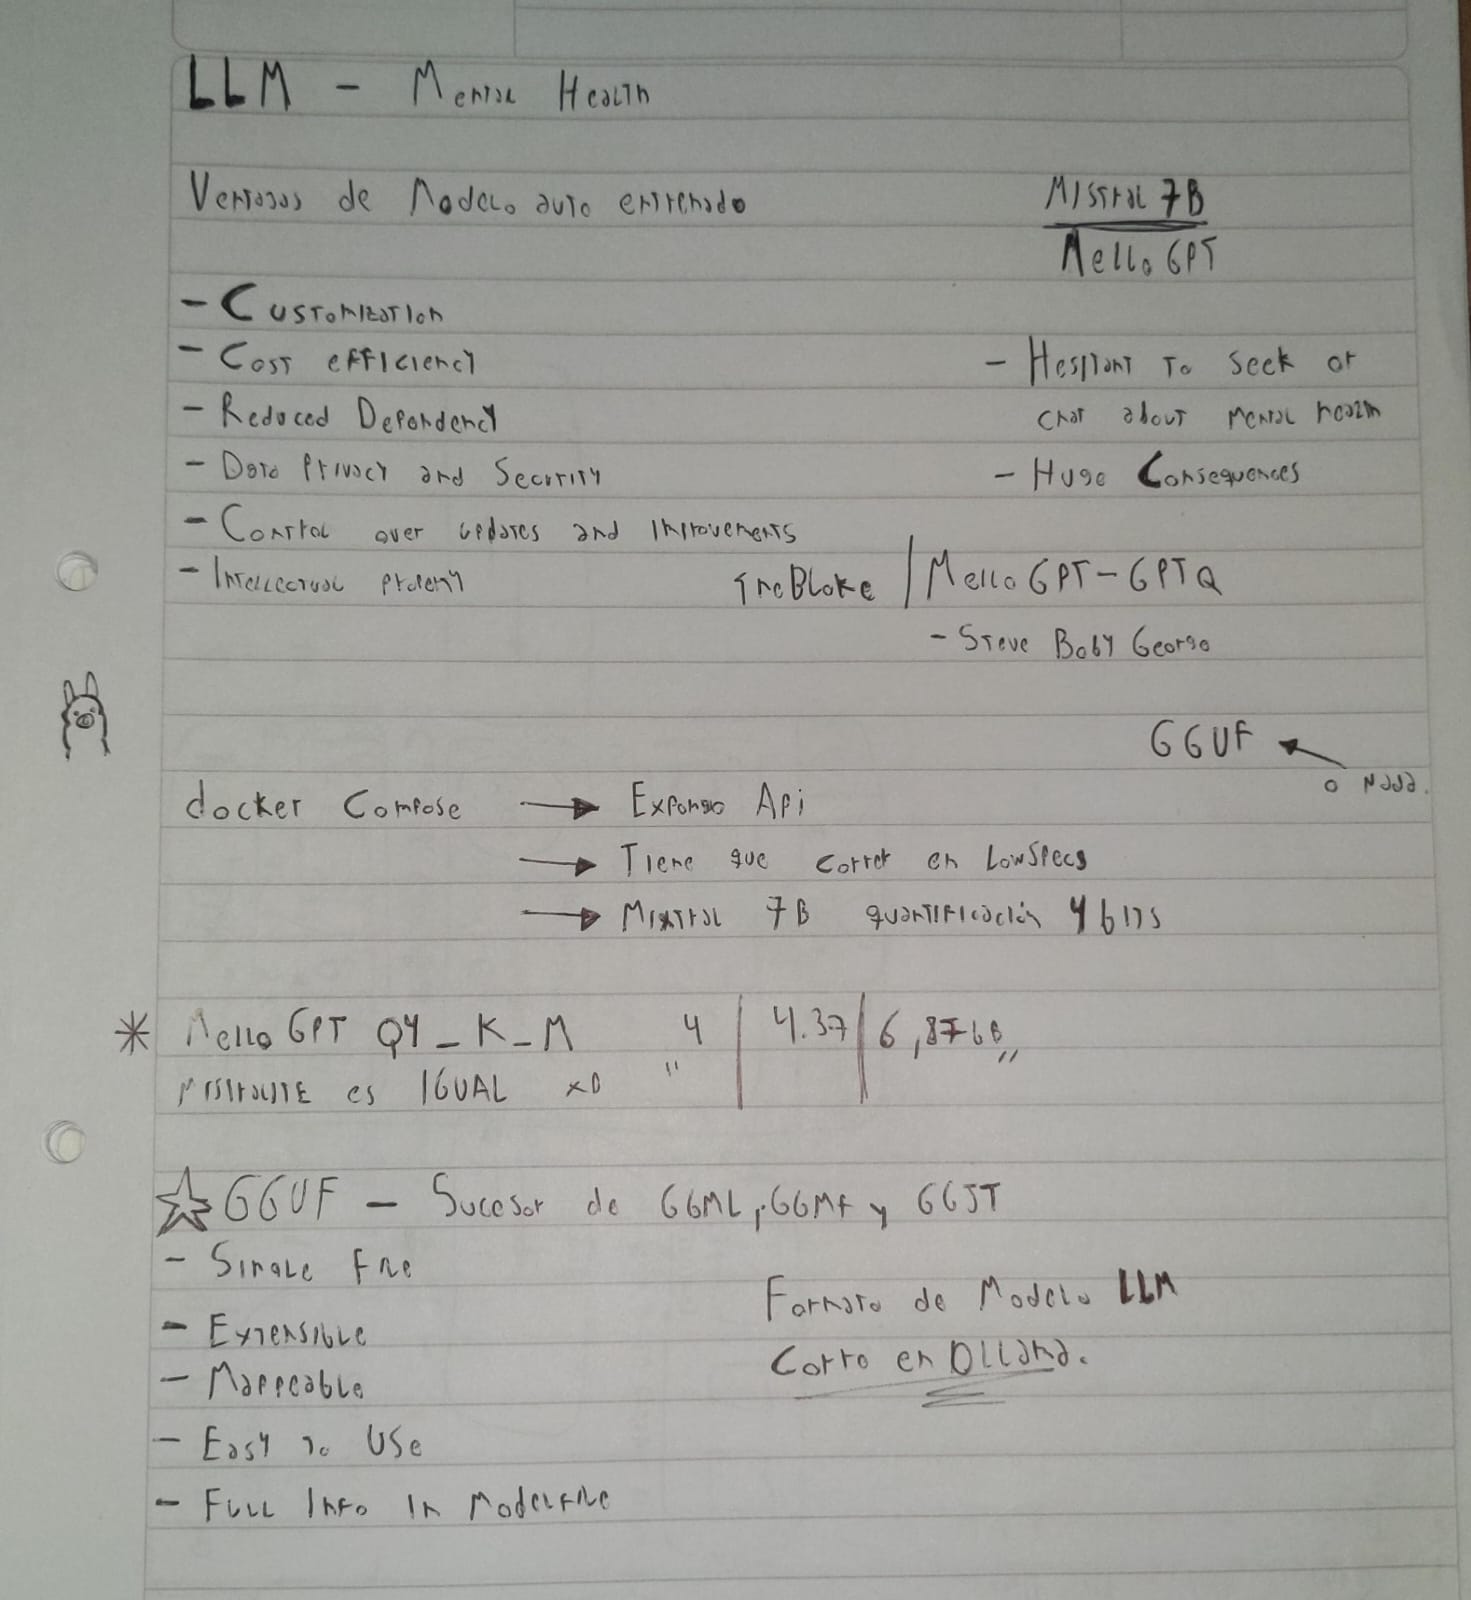 LLM - Mental Health
Ventajas de Modelo auto entrenado
Mistral 7B
MelloGPT
- Customization
- Cost efficiency
- Reduced Dependency
- Data Privacy and Security
- Control over updates and improvements
- Intellectual property
- Hesitant to seek or
chat about mental health
- Huge Consequences
TheBloke / MelloGPT-GPTQ
- Steve Boby George
GGUF
o nada.
docker compose → Expongo Api
→ Tiene que correr en LowSpecs
→ Mixtral 7B quantificación 4 bits
* MelloGPT Q4_K_M 4 | 4.37 | 6,87GB
MISTRALITE es IGUAL xD " | | "
☆ GGUF - Sucesor de GGML, GGMF y GGJT
- Single File
- Extensible
- Mappeable
- Easy to Use
- Full Info In Modelfile
Formato de Modelo LLM
Corro en Ollama.